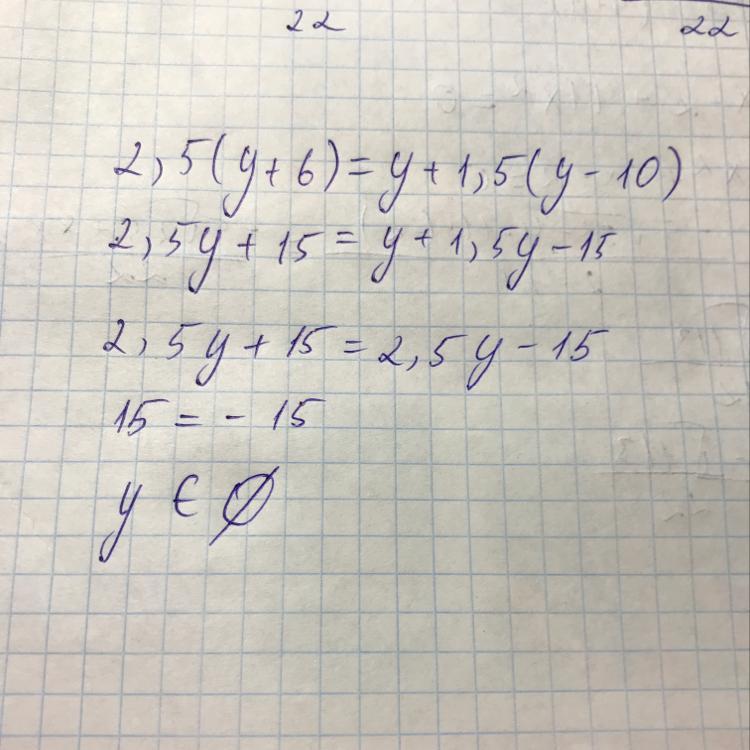 22 22
2,5(y+6)=y+1,5(y-10)
2,5y+15=y+1,5y-15
2,5y+15=2,5y-15
15=-15
y ∈ ∅